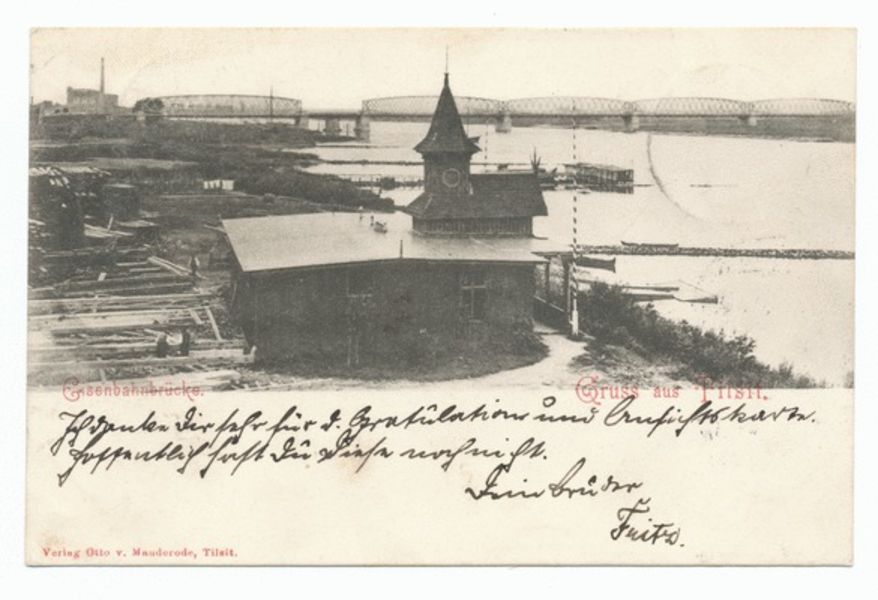 Eisenbahnbrücke.
Gruss aus Tilsit.
Ich danke Dir sehr für d. Gratulation und Ansichtskarte.
Hoffentlich hast Du Diese noch nicht.
Dein Bruder
Fritz.
Verlag Otto v. Mauderode, Tilsit.